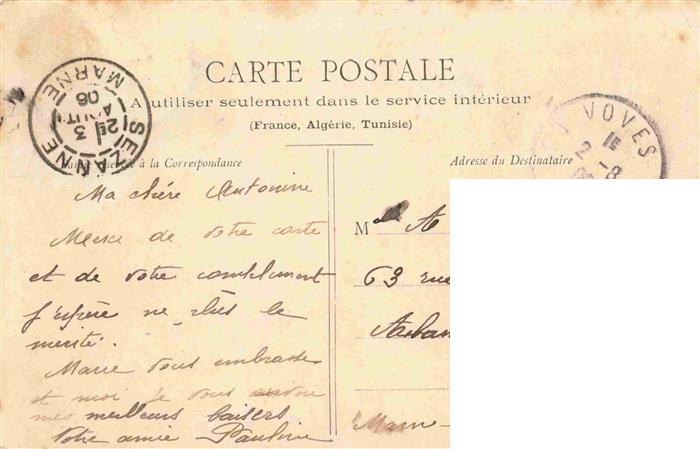 CARTE POSTALE
A utiliser seulement dans le service intérieur
(France, Algérie, Tunisie)
SEZANNE
MARNE
3 AOUT 06
VOVES
2 -8
à la Correspondance
Adresse du Destinataire
Ma chère Antonine
Merci de votre carte
et de votre compliment
j'espère ne plus le
mérité.
Marie vous embrasse
et moi je vous envoie
mes meilleurs baisers
Votre amie Pauline
Mlle A
63 rue
Marn